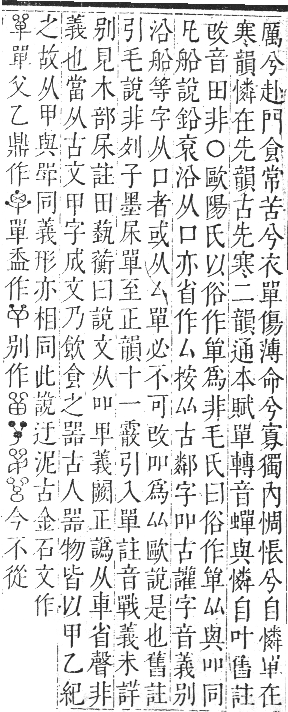 厲兮赴門食常苦兮衣單傷薄命兮寡獨內惆悵兮自憐單在
寒韻憐在先韻古先寒二韻通本賦單轉音蟬與憐自叶舊註
改音田非○歐陽氏以俗作単為非毛氏曰俗作単厸與吅同
凡船說鉛兗沿从口亦省作厶按厸古鄰字吅古讙字音義別
沿船等字从口者或从厶單必不可改吅為厸歐說是也舊註
引毛說非列子墨杘單至正韻十一霰引入單註音戰義未詳
別見木部杘註田蓺衡曰說文从吅𠦒義闕正譌从車省聲非
義也當从古文甲字成文乃飲食之器古人器物皆以甲乙紀
之故从甲與斝同義形亦相同此說迂泥古金石文作
單單父乙鼎作單盉作別作今不從